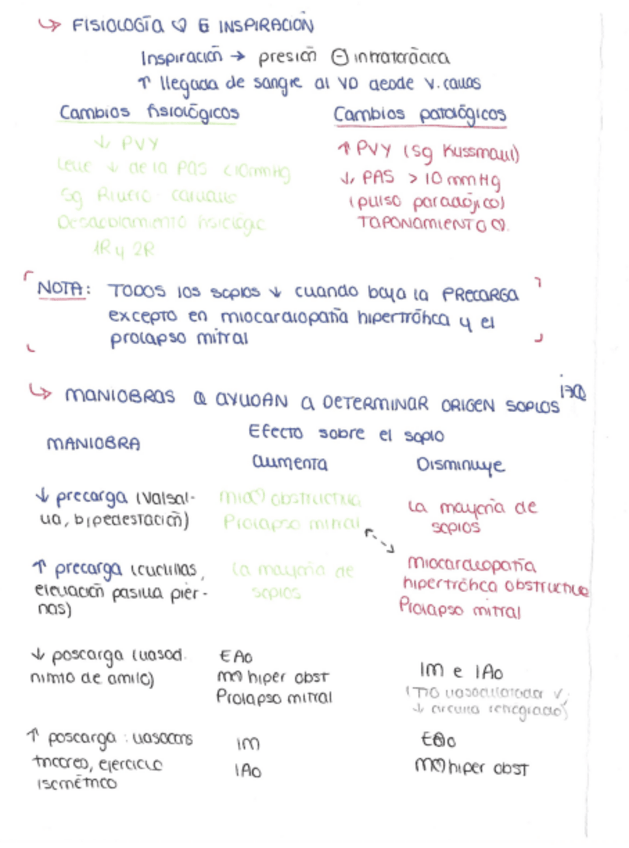 ↳ FISIOLOGÍA ♡ E INSPIRACIÓN
Inspiración → presión ⊖ intratorácica
↑ llegada de sangre al VD desde V. cavas
Cambios fisiológicos
Cambios patológicos
↓ PVY
Leve ↓ de la PAS <10mmHg
Sg Rivero-Carvallo
Desdoblamiento fisiológic
1R y 2R
↑ PVY (Sg Kussmaul)
↓ PAS > 10 mmHg
(pulso paradójico)
TAPONAMIENTO ♡.
NOTA: TODOS los soplos ↓ cuando baja la PRECARGA
excepto en miocardiopatía hipertrófica y el
prolapso mitral
↳ MANIOBRAS Q AYUDAN A DETERMINAR ORIGEN SOPLOS
MANIOBRA
Efecto sobre el soplo
aumenta
Disminuye
↓ precarga (Valsal-
va, bipedestación)
mio♡ obstructiva
Prolapso mitral
La mayoría de
soplos
↑ precarga (cuclillas,
elevación pasiva pier-
nas)
La mayoría de
soplos
miocardiopatía
hipertrófica obstructiva
Prolapso mitral
↓ poscarga (vasod.
nitrito de amilo)
EAo
m♡ hiper obst
Prolapso mitral
IM e IAo
(TTO vasodilatador
↓ circuito retrógrado)
↑ poscarga: vasocons
trictores, ejercicio
isométrico
IM
IAo
EAo
m♡ hiper obst